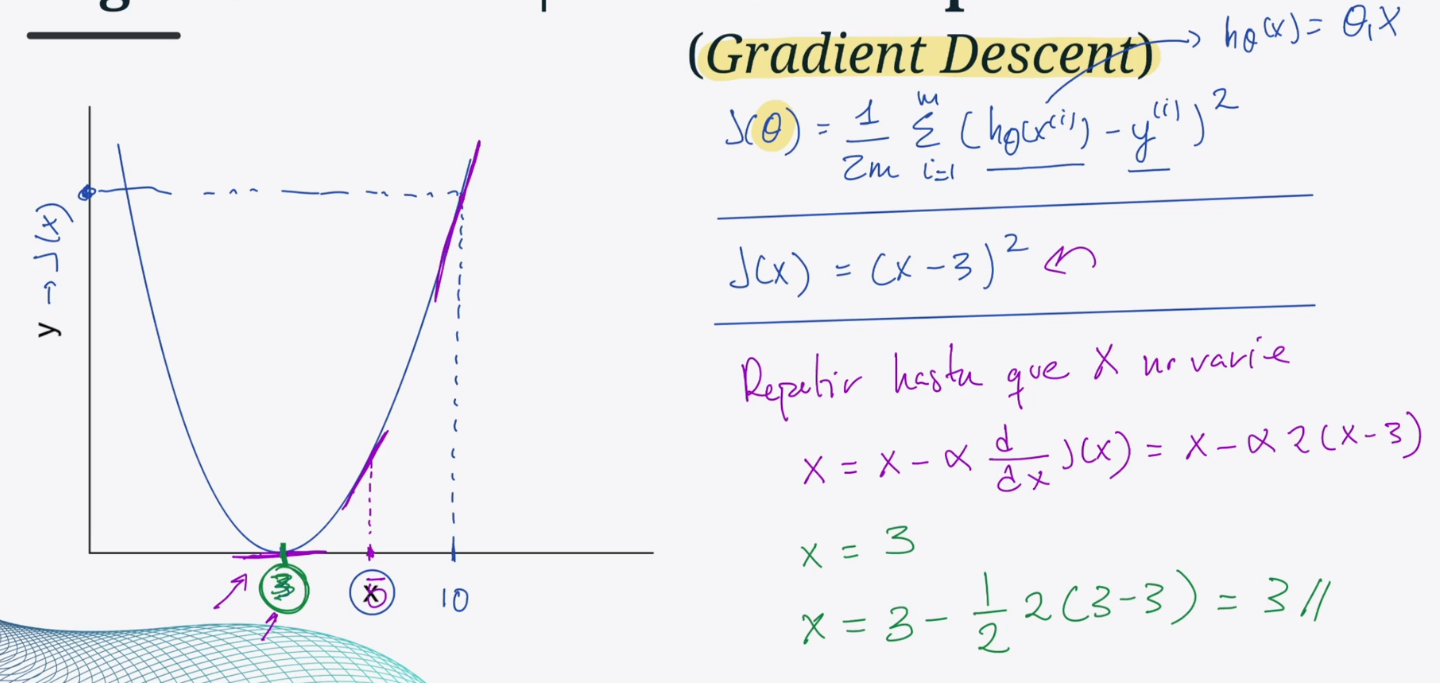 (Gradient Descent) → hθ(x) = θ₁x
J(θ) = 1/2m Σ i=1 m (hθ(x⁽ⁱ⁾) - y⁽ⁱ⁾)²
J(x) = (x - 3)²
Repetir hasta que x no varíe
x = x - α d/dx J(x) = x - α 2(x-3)
x = 3
x = 3 - 1/2 2(3-3) = 3 //
y → J(x)
3
x
5
10